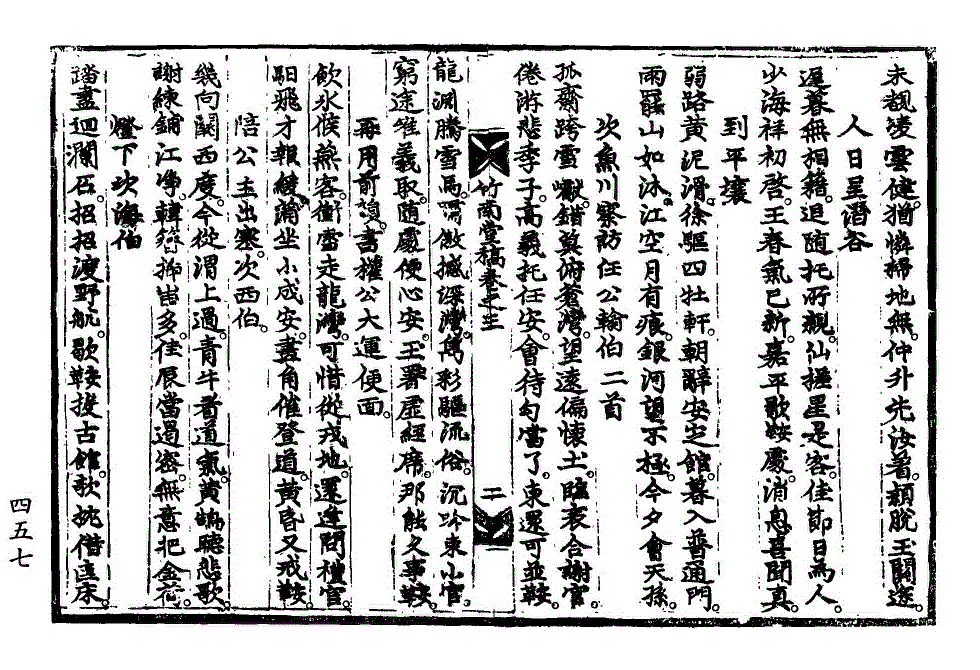 未覩凌雲健猶憐掃地無仲升先汝着頻脫玉關途
人日呈潛谷
遲暮無相籍追随托所親仙槎星是客佳節日為人
少海祥初啓王春氣已新嘉平歌鞍慶消息喜聞真
到平壤
弱路黃泥滑徐驅四牡軒朝辭安定館暮入普通門
雨羅山如沐江空月有痕銀河望不極今夕會天孫
次魚川察訪任公翰伯二首
孤齋跨雪巘錯莫俯蒼灣望遠偏懷土臨衰合謝官
倦游悲季子高義托任安會待勾當了東還可並鞍
竹南堂稿卷之 二
龍淵騰雪馬 傲撼深灣萬彩驅流俗沉吟束小官
窮途唯義取随處便心安玉署虛經席那能久事鞍
再用前韻書權公大運便面
飲冰候燕客衝雪走龍灣可惜從戎地還逢問禮官
馹飛才報綾滿坐小成安畫角催登道黃昏又戒鞍
陪公主出塞次西伯
幾向關西度今從渭上過青牛看道氣黃鵠聽悲歌
謝練鋪江淨韓 抑岩多佳辰當遏密無意把金荷
燈下次海伯
踏盡迴瀾石招招渡野航歇鞍投古館欹枕借匡床
四五七